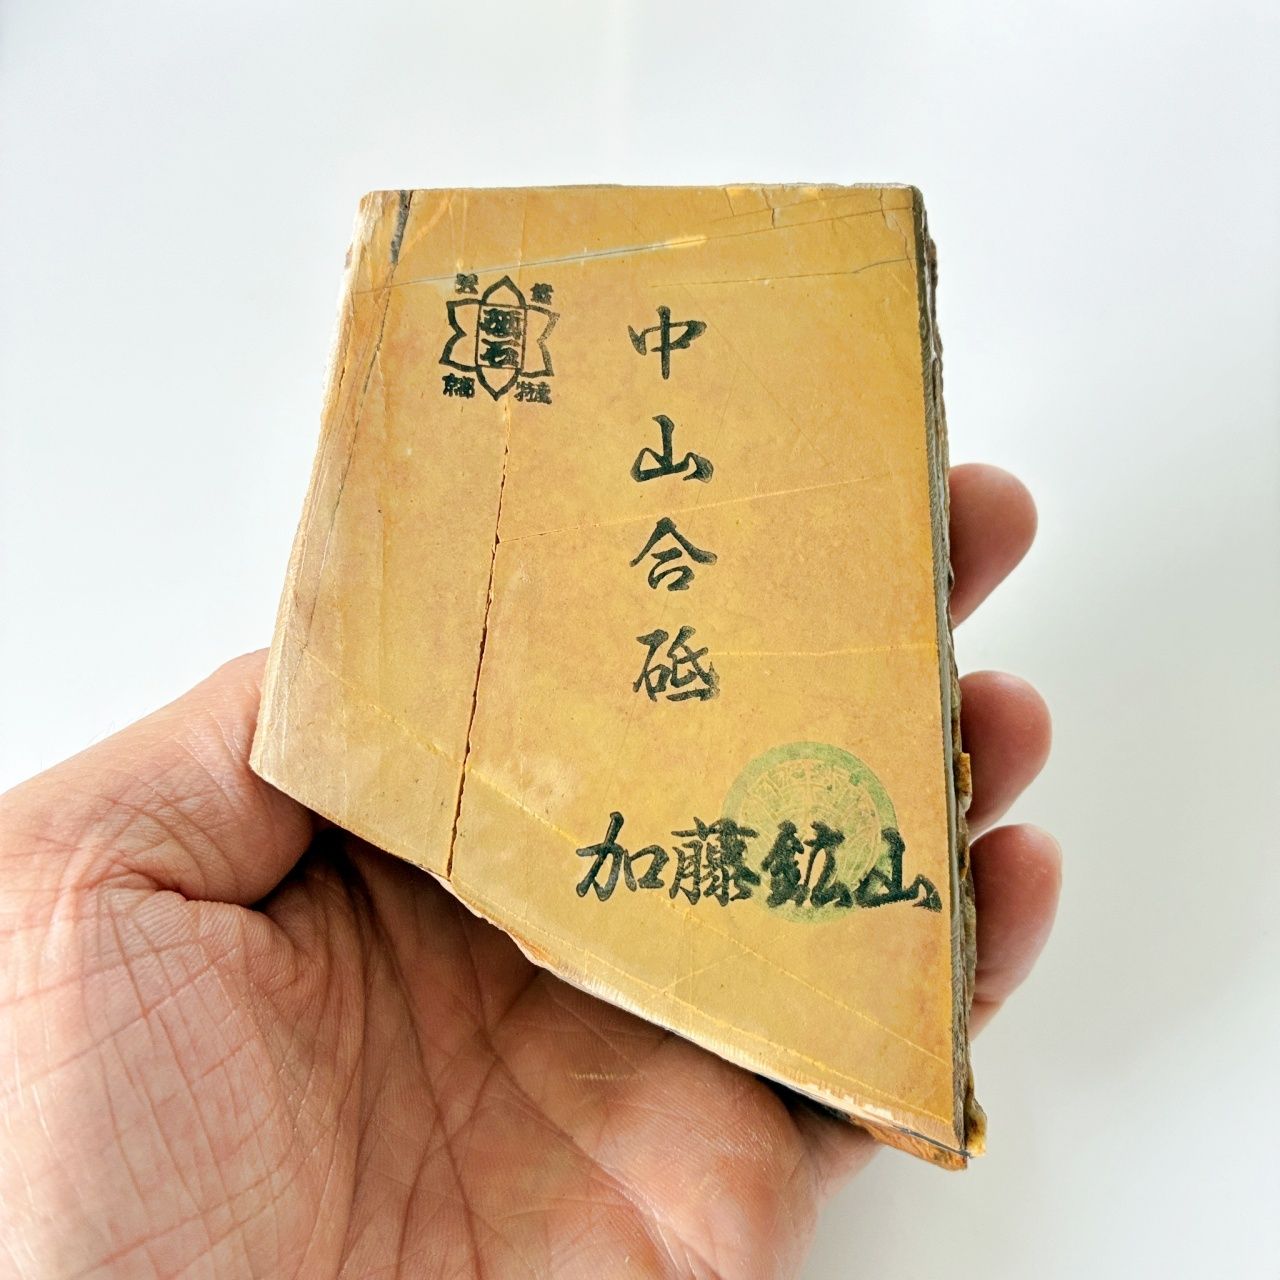 中山合砥
加藤鉱山
砥石
京都
特産